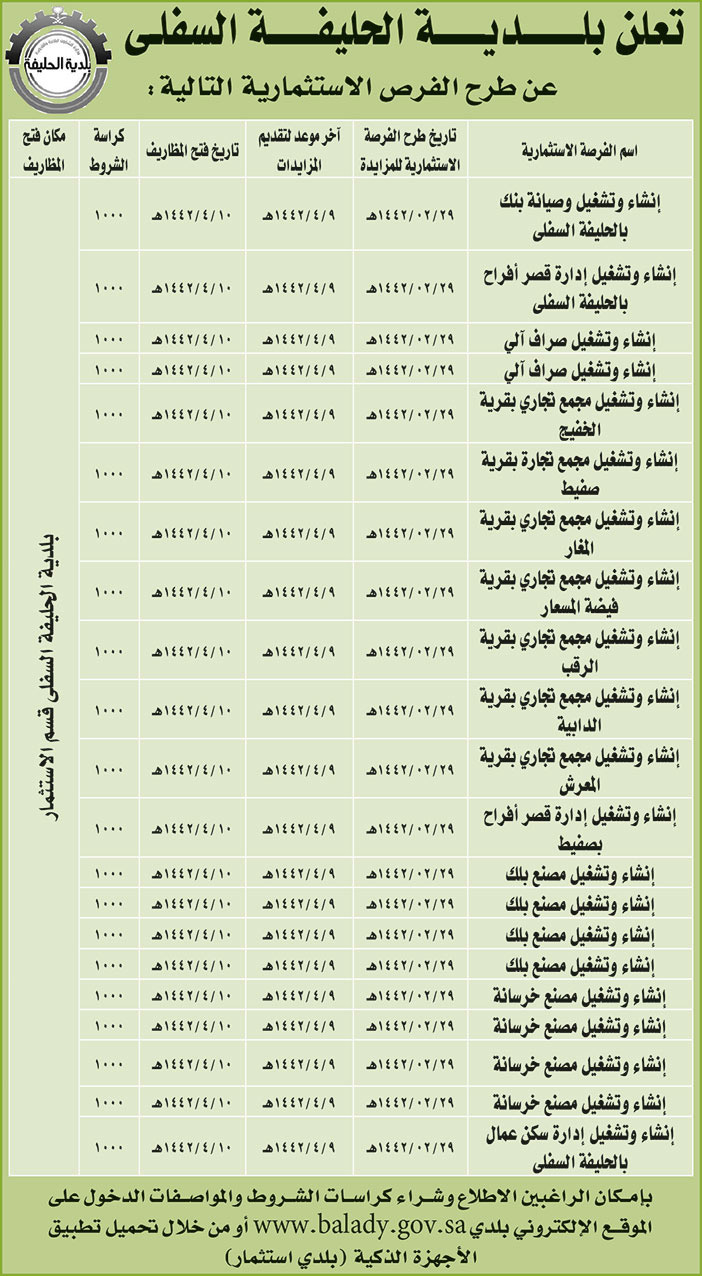 تعلن بلدية الحليفة السفلى
عن طرح الفرص الاستثمارية التالية :
بلدية الحليفة
اسم الفرصة الاستثمارية
تاريخ طرح الفرصة
الاستثمارية للمزايدة
آخر موعد لتقديم
المزايدات
تاريخ فتح المظاريف
كراسة
الشروط
مكان فتح
المظاريف
إنشاء وتشغيل وصيانة بنك
بالحليفة السفلى
١٤٤٢/٠٢/٢٩هـ ١٤٤٢/٤/٩هـ ١٤٤٢/٤/١٠هـ ١٠٠٠
إنشاء وتشغيل إدارة قصر أفراح
بالحليفة السفلى
١٤٤٢/٠٢/٢٩هـ ١٤٤٢/٤/٩هـ ١٤٤٢/٤/١٠هـ ١٠٠٠
إنشاء وتشغيل صراف آلي ١٤٤٢/٠٢/٢٩هـ ١٤٤٢/٤/٩هـ ١٤٤٢/٤/١٠هـ ١٠٠٠
إنشاء وتشغيل صراف آلي ١٤٤٢/٠٢/٢٩هـ ١٤٤٢/٤/٩هـ ١٤٤٢/٤/١٠هـ ١٠٠٠
إنشاء وتشغيل مجمع تجاري بقرية
الخفيج
١٤٤٢/٠٢/٢٩هـ ١٤٤٢/٤/٩هـ ١٤٤٢/٤/١٠هـ ١٠٠٠
إنشاء وتشغيل مجمع تجارة بقرية
صفيط
١٤٤٢/٠٢/٢٩هـ ١٤٤٢/٤/٩هـ ١٤٤٢/٤/١٠هـ ١٠٠٠
إنشاء وتشغيل مجمع تجاري بقرية
المغار
١٤٤٢/٠٢/٢٩هـ ١٤٤٢/٤/٩هـ ١٤٤٢/٤/١٠هـ ١٠٠٠
إنشاء وتشغيل مجمع تجاري بقرية
فيضة المسعار
١٤٤٢/٠٢/٢٩هـ ١٤٤٢/٤/٩هـ ١٤٤٢/٤/١٠هـ ١٠٠٠
إنشاء وتشغيل مجمع تجاري بقرية
الرقب
١٤٤٢/٠٢/٢٩هـ ١٤٤٢/٤/٩هـ ١٤٤٢/٤/١٠هـ ١٠٠٠
إنشاء وتشغيل مجمع تجاري بقرية
الدابية
١٤٤٢/٠٢/٢٩هـ ١٤٤٢/٤/٩هـ ١٤٤٢/٤/١٠هـ ١٠٠٠
إنشاء وتشغيل مجمع تجاري بقرية
المعرش
١٤٤٢/٠٢/٢٩هـ ١٤٤٢/٤/٩هـ ١٤٤٢/٤/١٠هـ ١٠٠٠
إنشاء وتشغيل إدارة قصر أفراح
بصفيط
١٤٤٢/٠٢/٢٩هـ ١٤٤٢/٤/٩هـ ١٤٤٢/٤/١٠هـ ١٠٠٠
إنشاء وتشغيل مصنع بلك ١٤٤٢/٠٢/٢٩هـ ١٤٤٢/٤/٩هـ ١٤٤٢/٤/١٠هـ ١٠٠٠
إنشاء وتشغيل مصنع بلك ١٤٤٢/٠٢/٢٩هـ ١٤٤٢/٤/٩هـ ١٤٤٢/٤/١٠هـ ١٠٠٠
إنشاء وتشغيل مصنع بلك ١٤٤٢/٠٢/٢٩هـ ١٤٤٢/٤/٩هـ ١٤٤٢/٤/١٠هـ ١٠٠٠
إنشاء وتشغيل مصنع بلك ١٤٤٢/٠٢/٢٩هـ ١٤٤٢/٤/٩هـ ١٤٤٢/٤/١٠هـ ١٠٠٠
إنشاء وتشغيل مصنع خرسانة ١٤٤٢/٠٢/٢٩هـ ١٤٤٢/٤/٩هـ ١٤٤٢/٤/١٠هـ ١٠٠٠
إنشاء وتشغيل مصنع خرسانة ١٤٤٢/٠٢/٢٩هـ ١٤٤٢/٤/٩هـ ١٤٤٢/٤/١٠هـ ١٠٠٠
إنشاء وتشغيل مصنع خرسانة ١٤٤٢/٠٢/٢٩هـ ١٤٤٢/٤/٩هـ ١٤٤٢/٤/١٠هـ ١٠٠٠
إنشاء وتشغيل مصنع خرسانة ١٤٤٢/٠٢/٢٩هـ ١٤٤٢/٤/٩هـ ١٤٤٢/٤/١٠هـ ١٠٠٠
إنشاء وتشغيل إدارة سكن عمال
بالحليفة السفلى
١٤٤٢/٠٢/٢٩هـ ١٤٤٢/٤/٩هـ ١٤٤٢/٤/١٠هـ ١٠٠٠
بلدية الحليفة السفلى قسم الاستثمار
بإمكان الراغبين الاطلاع وشراء كراسات الشروط والمواصفات الدخول على
الموقع الإلكتروني بلدي www.balady.gov.sa أو من خلال تحميل تطبيق
الأجهزة الذكية (بلدي استثمار)